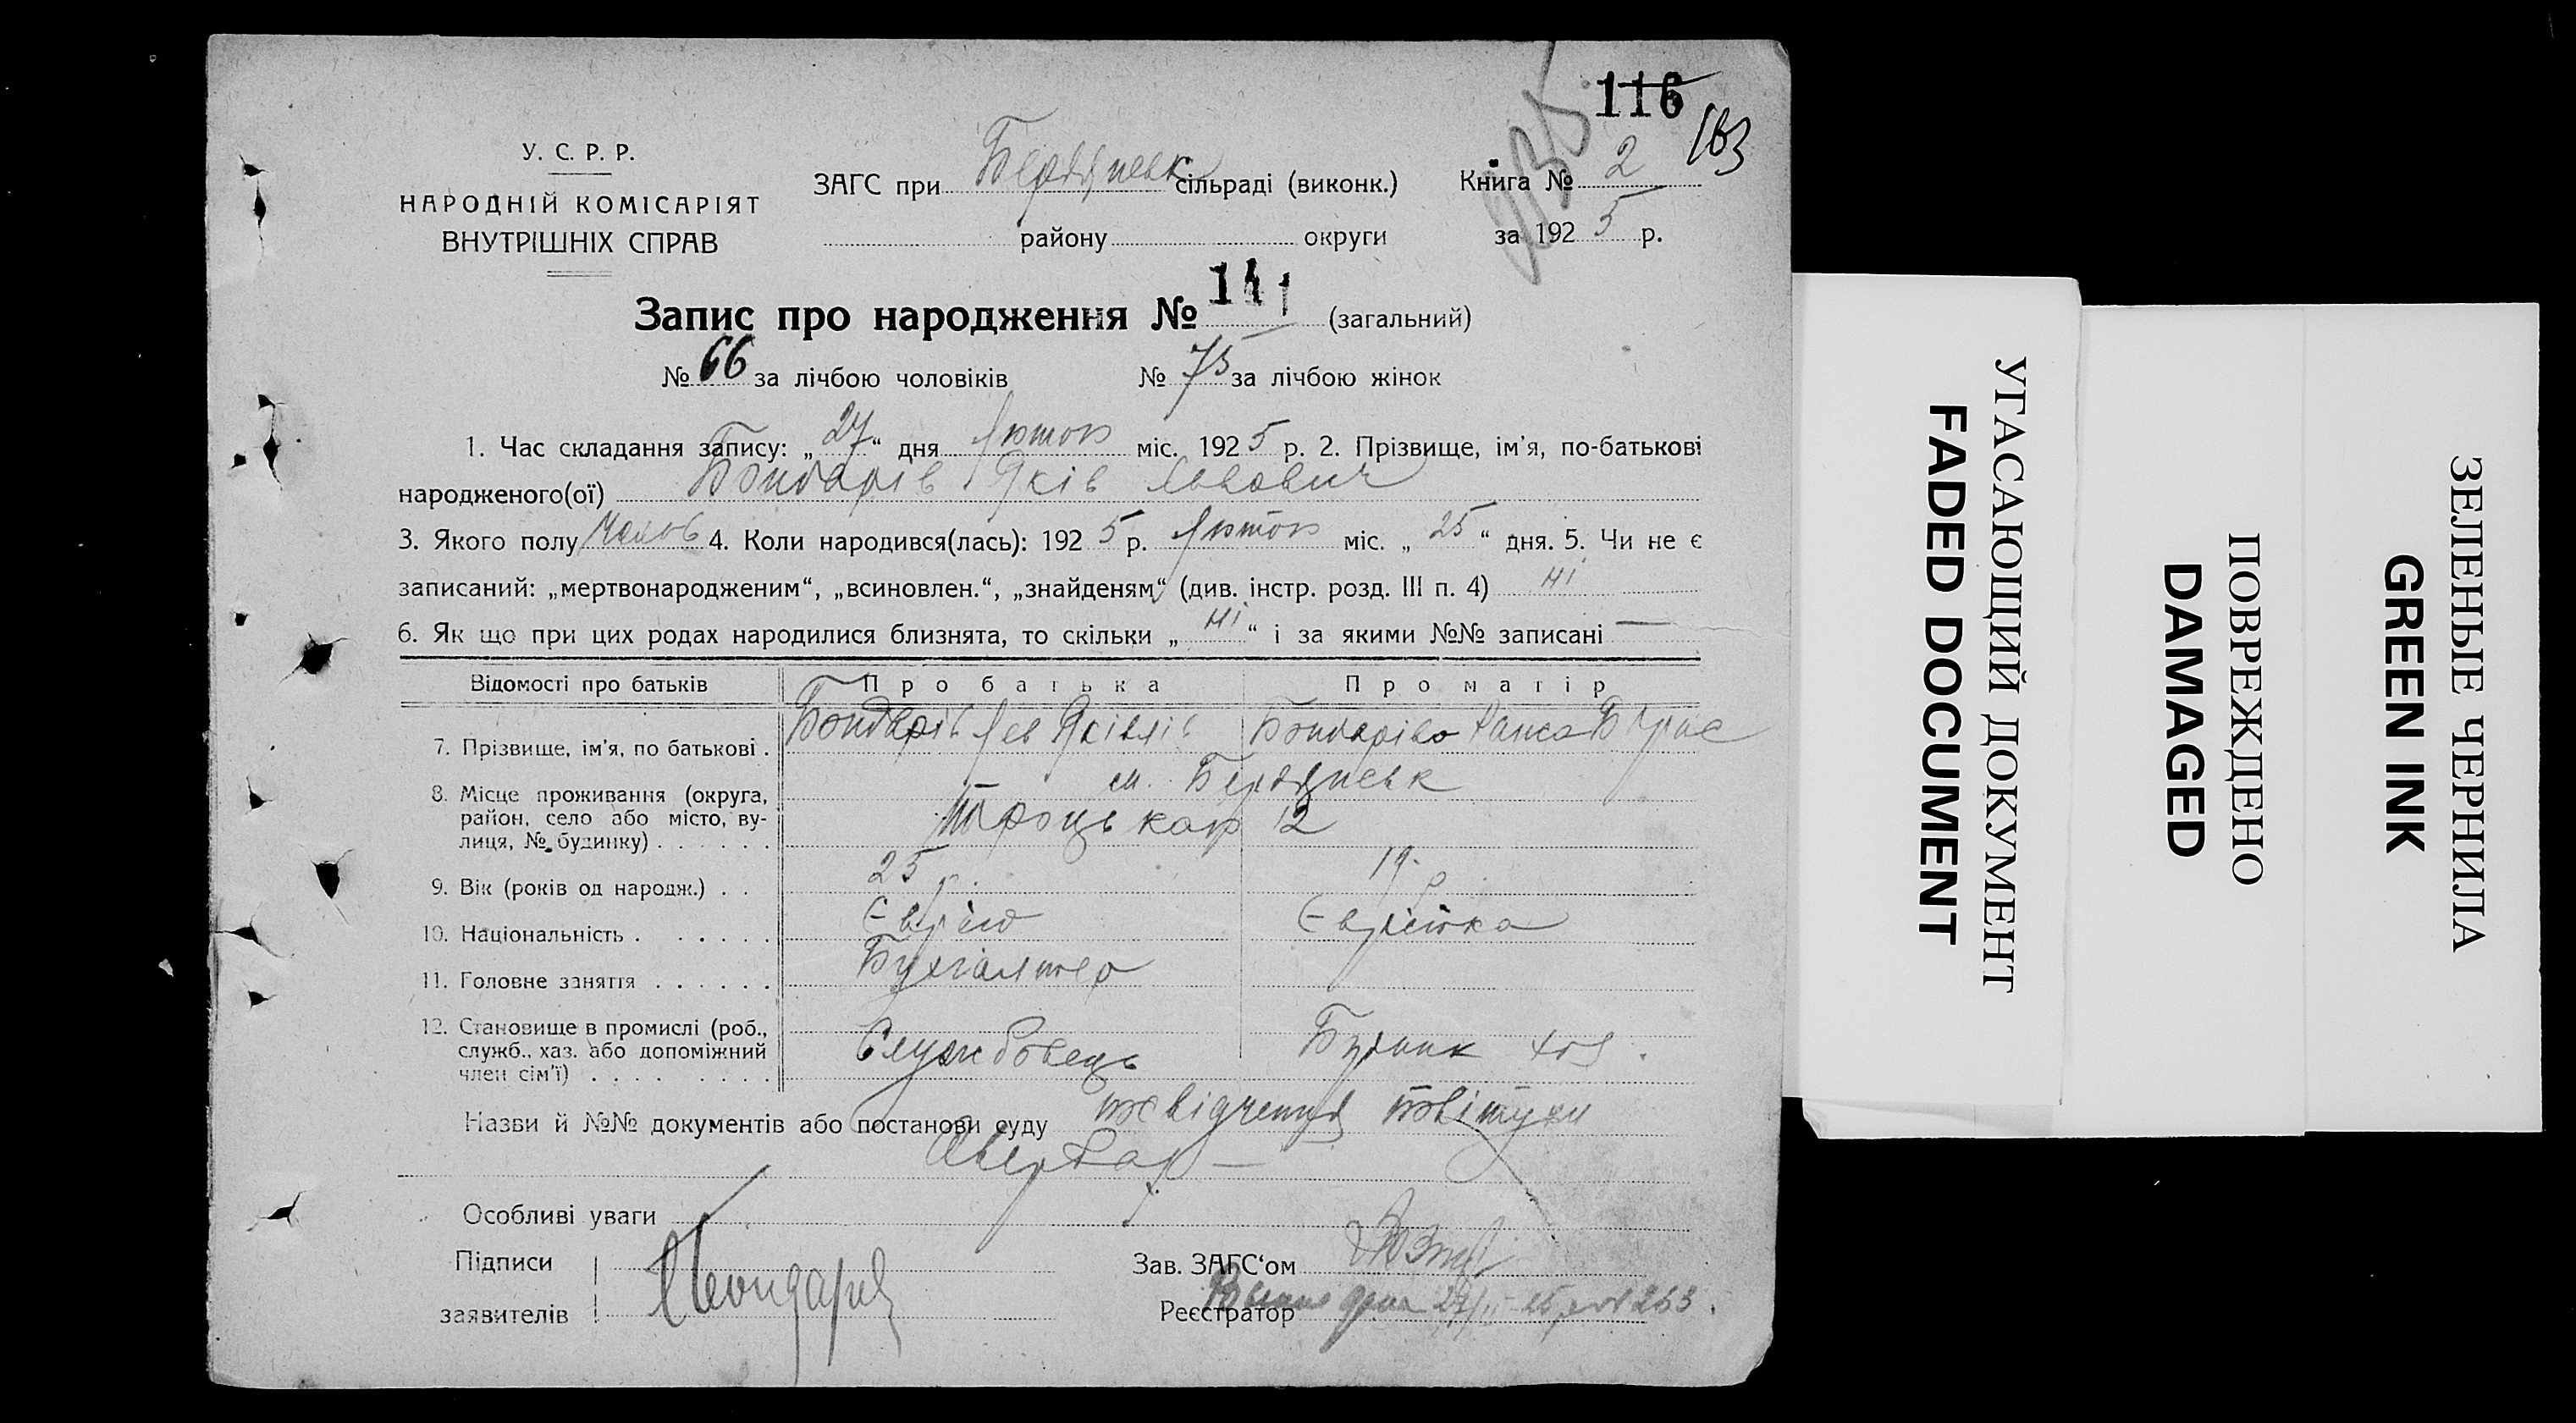 116
135
163
У. С. Р. Р.
НАРОДНІЙ КОМІСАРІЯТ
ВНУТРІШНІХ СПРАВ
ЗАГС при Бердянськ сільраді (виконк.) Книга № 2
району округи за 1925 р.
Запис про народження № 141 (загальний)
№ 66 за лічбою чоловіків № 75 за лічбою жінок
1. Час складання запису: „27“ дня Лютого міс. 1925 р. 2. Прізвище, ім'я, по-батькові
народженого(ої) Бондарів Яків Львович
3. Якого полу Чолов 4. Коли народився(лась): 1925 р. Лютого міс. „25“ дня. 5. Чи не є
записаний: „мертвонародженим“, „всиновлен.“, „знайденям“ (див. інстр. розд. III п. 4) ні
6. Як що при цих родах народилися близнята, то скільки „ні“ і за якими №№ записані —
Відомості про батьків Про батька Про матір
7. Прізвище, ім'я, по батькові . Бондарів Лев Яківлів Бондаріва Раиса
8. Місце проживання (округа, район, село або місто, вулиця, № будинку) . . . . . . м. Бердянськ
Троцькаго 12
9. Вік (років од народж.) . . 25 р. 19 р.
10. Національність . . . . . . Єврей Єврейка
11. Головне заняття . . . . . . Бухгалтер
12. Становище в промислі (роб., служб., хаз. або допоміжний член сім'ї) . . . . . . . . Службовець Будинк хоз.
Назви й №№ документів або постанови суду посвідчення повітухи
Авербах —
Особливі уваги
Підписи Зав. ЗАГС'ом
заявителів Бондарів Реєстратор 27/II-25 263.
УГАСАЮЩИЙ ДОКУМЕНТ
FADED DOCUMENT
ПОВРЕЖДЕНО
DAMAGED
ЗЕЛЕНЫЕ ЧЕРНИЛА
GREEN INK